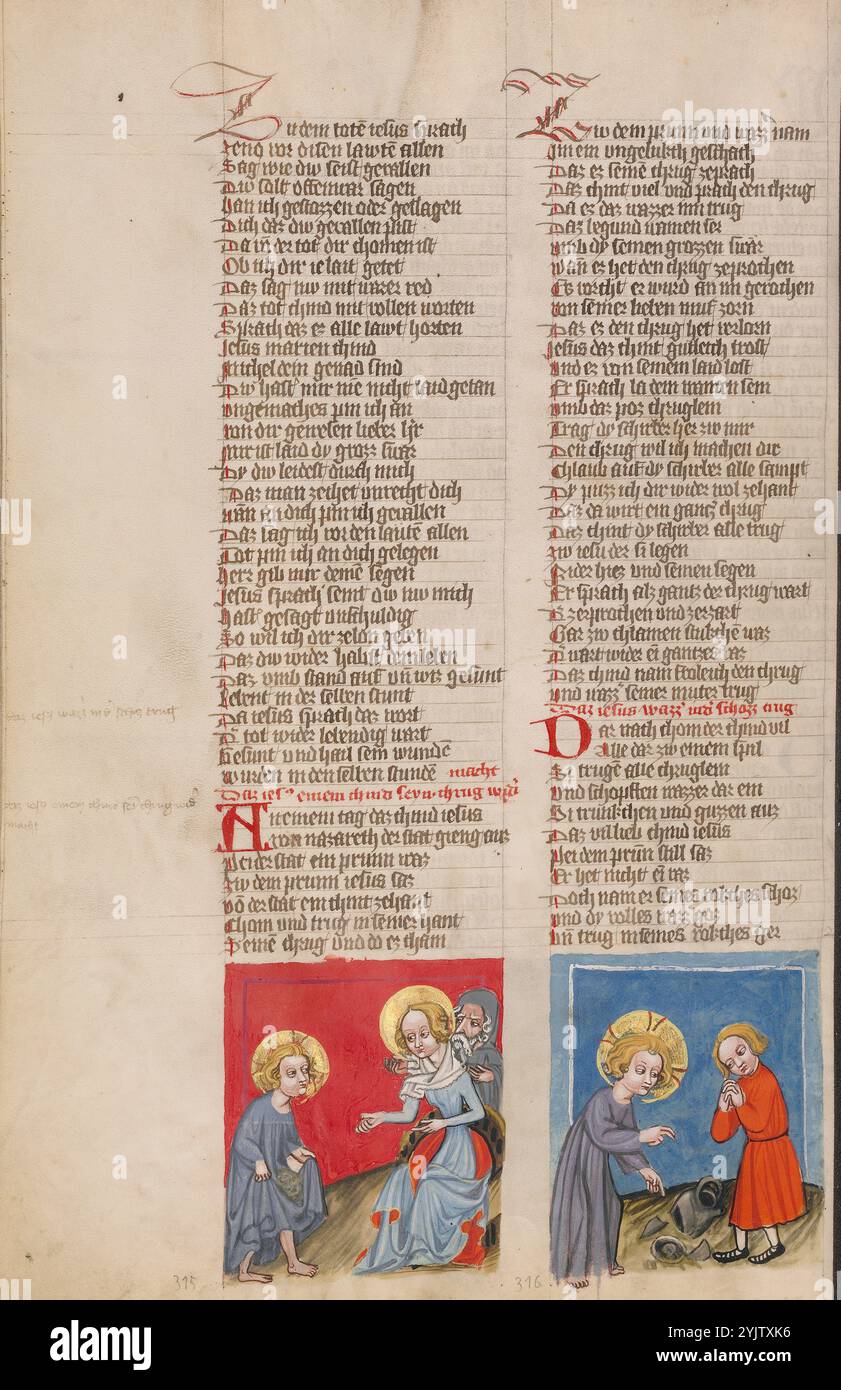 Zu dem toten iesus sprach
Zeno vor disen lawten allen
Sag wie diw seist gevallen
Diw solt offenwar sagen
han ich gestozzen oder geslagen
Dich daz diw gevallen pist
Da in der tot dir chomen ist
Ob ich dir ie lait getet
Daz sag niv mit warer red
Daz tot chind mit vollen worten
Sprach daz ez alle lawt horten
Jesus marien chind
Michel dein genad sind
Diw hast mir nie nicht laid getan
ungemaches pin ich an
von dir gewesen lieber
mir ist laid dy grozz
Dy diw leidest durch mich
Daz man zeihet unrecht dich
an dich pin ich gevallen
Daz sag ich vor den lauten allen
Tot pin ich an dich gelegen
herr gib mir deinen segen
Jesus sprach seint diw niv mich
hast gesagt unschuldig
So wil ich dir ze lon geben
Daz diw wider habst dein leben
Daz umb stand auf un wis gesunt
Lebent in der selben stunt
Da iesus sprach daz wort
tot wider lebendig wart
Gesunt und hail sein wunde
wurden in den selben stunde
macht
Daz ies' einem chind seyn chrug
An einem tag daz chind iesus
von nazareth der stat gieng aus
Pei der stat ein prunn waz
Zw dem prunn iesus saz
von der stat ein chint zehant
Chom und trug in seiner hant
Seinē chrug und do ez cham
Zw dem prunn und wazz nam
Im ein ungelukch geschach
Daz ez seinē chrug zeprach
Daz chint viel und prach den chrug
Da ez daz wazzer inn trug
Daz begund wainen ser
umb dy seinen grozzen swar
wan ez het den chrug zeprochen
Ez vorcht ez wurd an im gerochen
von seiner lieben mut zorn
Daz ez den chrug het verlorn
Jesus daz chint gutleich trost
und ez von seinem laid lost
Er sprach la dein wainen sein
umb daz poz chruglein
Trag dy scherber her zw mir
Den chrug wil ich machen dir
Chlaub auf dy scherber alle sampt
Dy puzz ich dir wider wol zehant
Daz da wirt ein gantz chrug
Daz chint dy scherber alle trug
zw iesu der si legen
Pider hiez und seinen segen
Er sprach alz gantz der chrug wart
Gar zw chlainen stukchē waz
wart wider ei gantzer vaz
Daz chind nam froleich den chrug
und wazz seiner muter trug
Daz iesus wazz in schozz trug
Dar nach chom der chind vil
Alle dar zw einem spil
Si trugē alle chruglein
und schopften wazzer dar ein
Si trunkchen und guzzen auz
Daz vil lieb chind iesus
Pei dem prun still saz
Er het nicht ei vaz
Doch nam er seines rokches schoz
und dy volles wazz goz
un trug in seines rokches ger
315
316
alamy
Image ID: 2YJTXK6
www.alamy.com